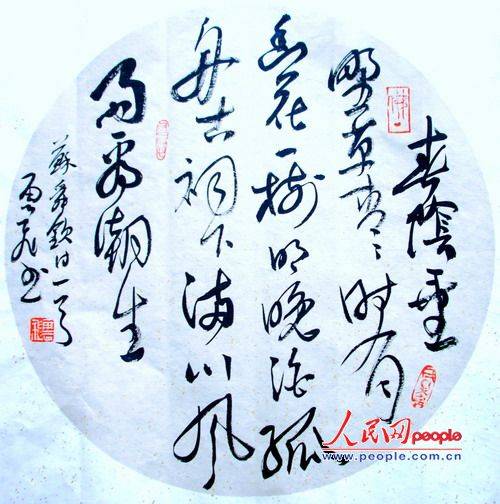 春陰垂
野草青々时有
幽花一树明晚泊孤
舟古祠下满川风
雨看潮生
蘇舜欽诗一首
人民网 people
www.people.com.cn